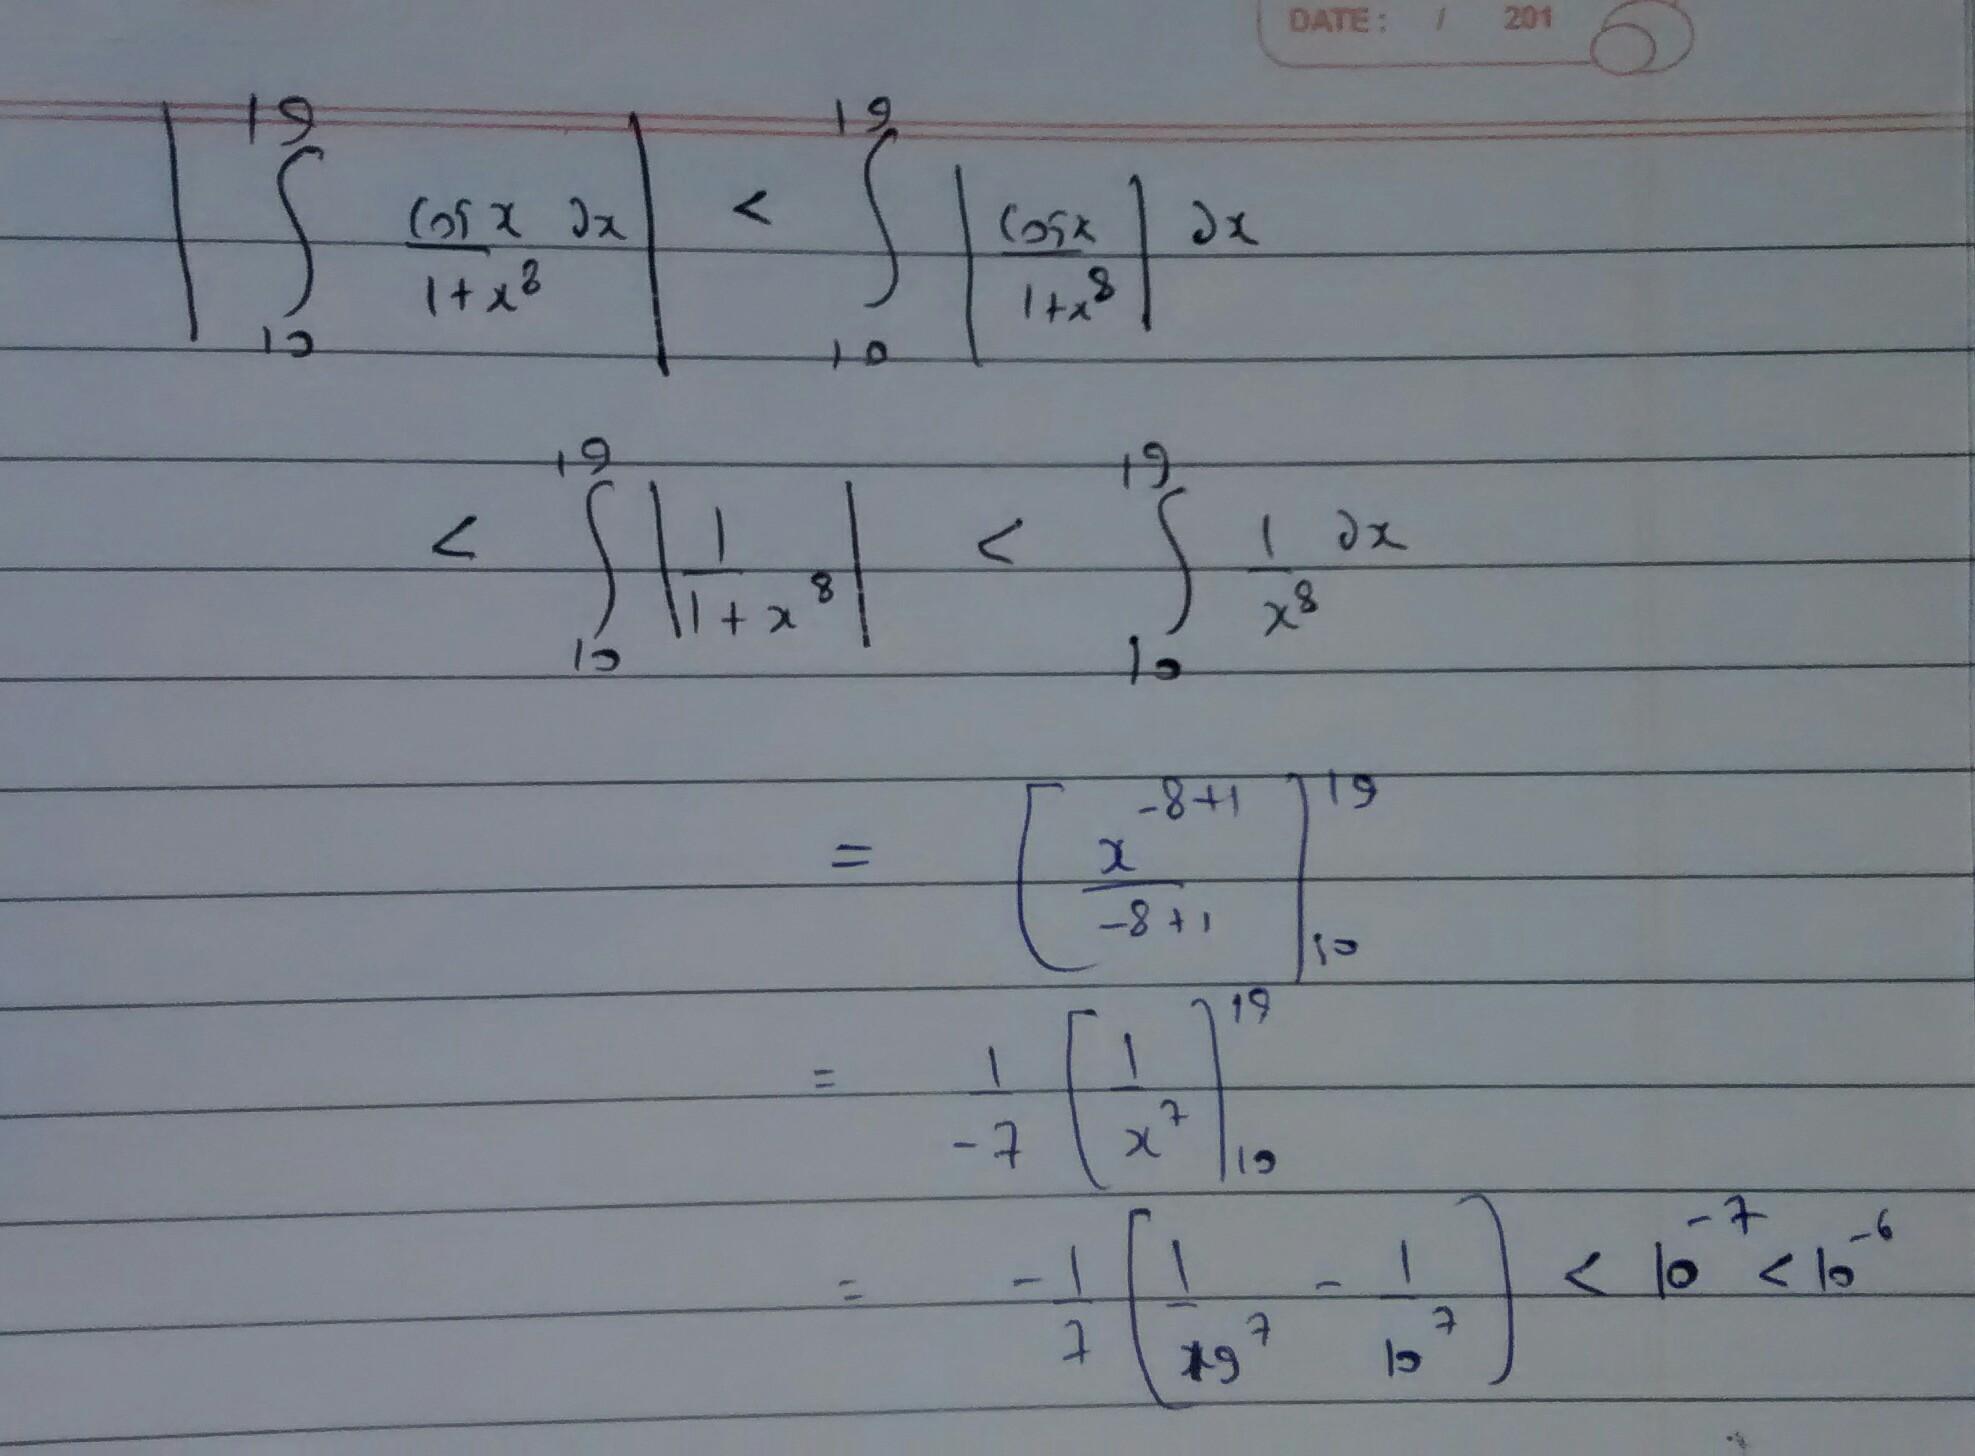 DATE: / 201
| ∫₁₀¹⁹ cosx ∂x / 1+x⁸ | < ∫₁₀¹⁹ | cosx / 1+x⁸ | ∂x
< ∫₁₀¹⁹ | 1 / 1+x⁸ | < ∫₁₀¹⁹ 1 / x⁸ ∂x
= [ x⁻⁸⁺¹ / -8+1 ]₁₀¹⁹
= 1 / -7 [ 1 / x⁷ ]₁₀¹⁹
= -1 / 7 [ 1 / 19⁷ - 1 / 10⁷ ] < 10⁻⁷ < 10⁻⁶